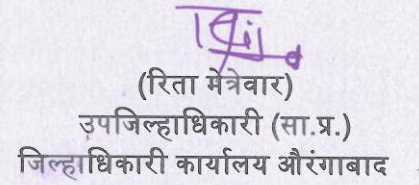 (रिता मेत्रेवार)
उपजिल्हाधिकारी (सा.प्र.)
जिल्हाधिकारी कार्यालय औरंगाबाद